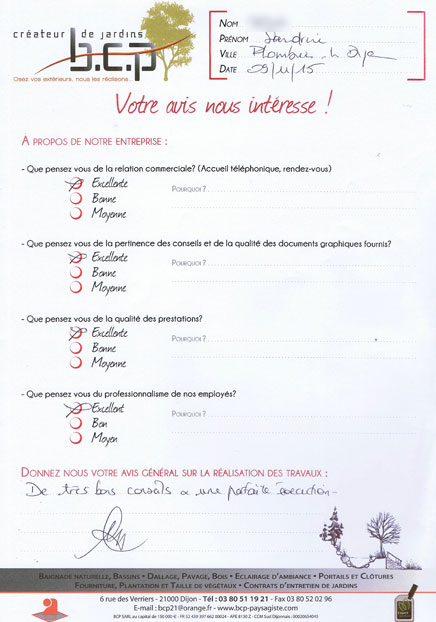 créateur de jardins
b.c.p
Osez vos extérieurs, nous les réalisons...
NOM
PRÉNOM Sandrine
VILLE Plombières les Dijon
DATE 09/11/15
Votre avis nous intéresse !
A PROPOS DE NOTRE ENTREPRISE :
- Que pensez vous de la relation commerciale? (Accueil téléphonique, rendez-vous)
Excellente POURQUOI ?
Bonne
Moyenne
- Que pensez vous de la pertinence des conseils et de la qualité des documents graphiques fournis?
Excellente POURQUOI ?
Bonne
Moyenne
- Que pensez vous de la qualité des prestations?
Excellente POURQUOI ?
Bonne
Moyenne
- Que pensez vous du professionnalisme de nos employés?
Excellent POURQUOI ?
Bon
Moyen
DONNEZ NOUS VOTRE AVIS GÉNÉRAL SUR LA RÉALISATION DES TRAVAUX :
De très bons conseils & une parfaite éxecution -
BAIGNADE NATURELLE, BASSINS • DALLAGE, PAVAGE, BOIS • ECLAIRAGE D'AMBIANCE • PORTAILS ET CLÔTURES
FOURNITURE, PLANTATION ET TAILLE DE VÉGÉTAUX • CONTRATS D'ENTRETIEN DE JARDINS
6 rue des Verriers - 21000 Dijon - Tél : 03 80 51 19 21 - Fax 03 80 52 02 96
E-mail : bcp21@orange.fr - www.bcp-paysagiste.com
BCP SARL au capital de 150 000 € - FR 52 439 397 662 00024 - APE 8130 Z - CCM Sud Dijonnais : 00020654045